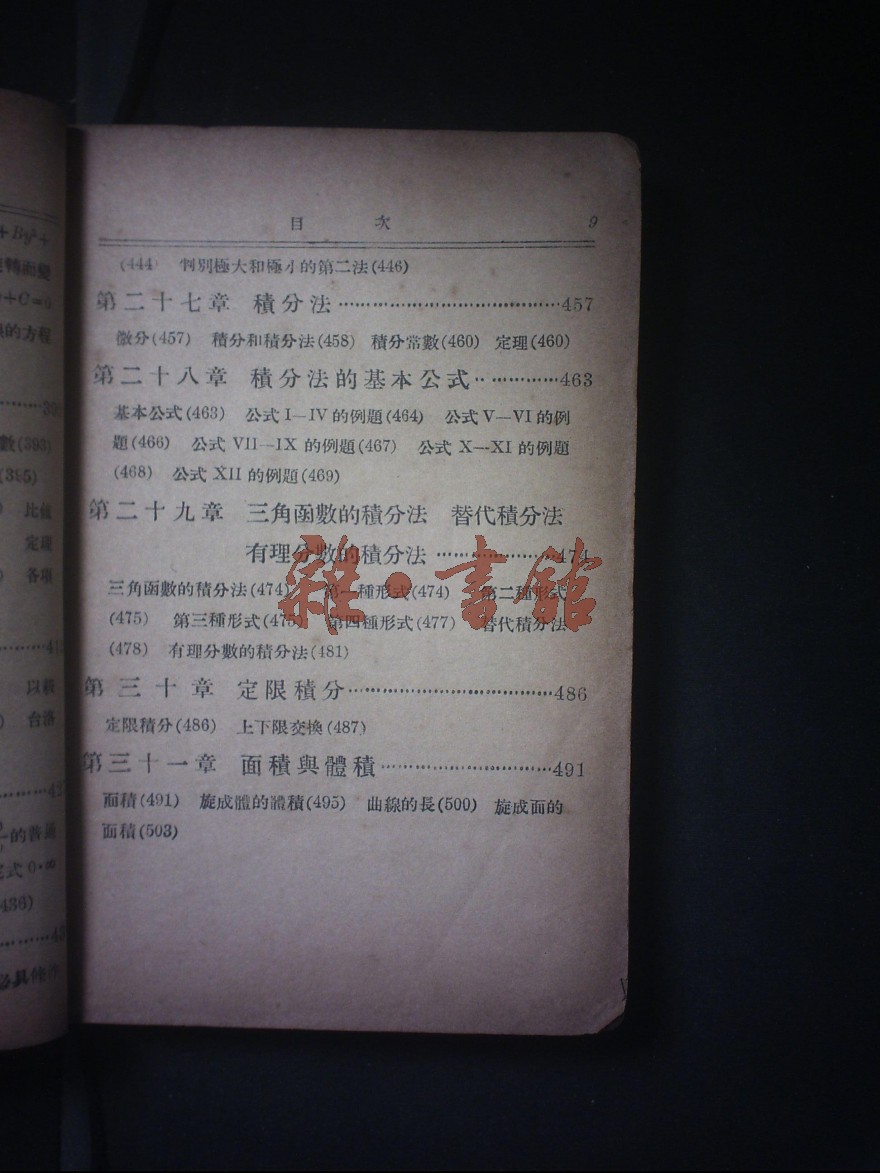 目 次 9
(444) 判別極大和極小的第二法(446)
第二十七章 積分法⋯⋯⋯⋯⋯⋯⋯⋯⋯⋯457
微分(457) 積分和積分法(458) 積分常數(460) 定理(460)
第二十八章 積分法的基本公式⋯⋯⋯⋯463
基本公式(463) 公式 I—IV 的例題(464) 公式 V—VI 的例
題(466) 公式 VII—IX 的例題(467) 公式 X—XI 的例題
(468) 公式 XII 的例題(469)
第二十九章 三角函數的積分法 替代積分法
有理分數的積分法⋯⋯⋯⋯⋯⋯474
三角函數的積分法(474) 第一種形式(474) 第二種形式
(475) 第三種形式(475) 第四種形式(477) 替代積分法
(478) 有理分數的積分法(481)
第三十章 定限積分⋯⋯⋯⋯⋯⋯⋯⋯⋯486
定限積分(486) 上下限交換(487)
第三十一章 面積與體積⋯⋯⋯⋯⋯⋯⋯491
面積(491) 旋成體的體積(495) 曲線的長(500) 旋成面的
面積(503)
雜·書館
+By²+
轉面變
+C=0
的方程
數(393)
(395)
比值
各項
以
台洛
的普通
式 0·∞
436)